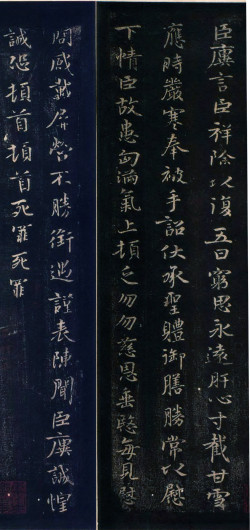 臣廙言臣祥除以復五日窮思永遠肝心寸截甘雪
應時嚴寒奉被手詔伏承聖體御膳勝常以慰
下情臣故患匈滿氣上頓乏勿勿慈恩垂愍每見慰
問感戴屏營不勝銜遇謹表陳聞臣廙誠惶
誠恐頓首頓首死罪死罪